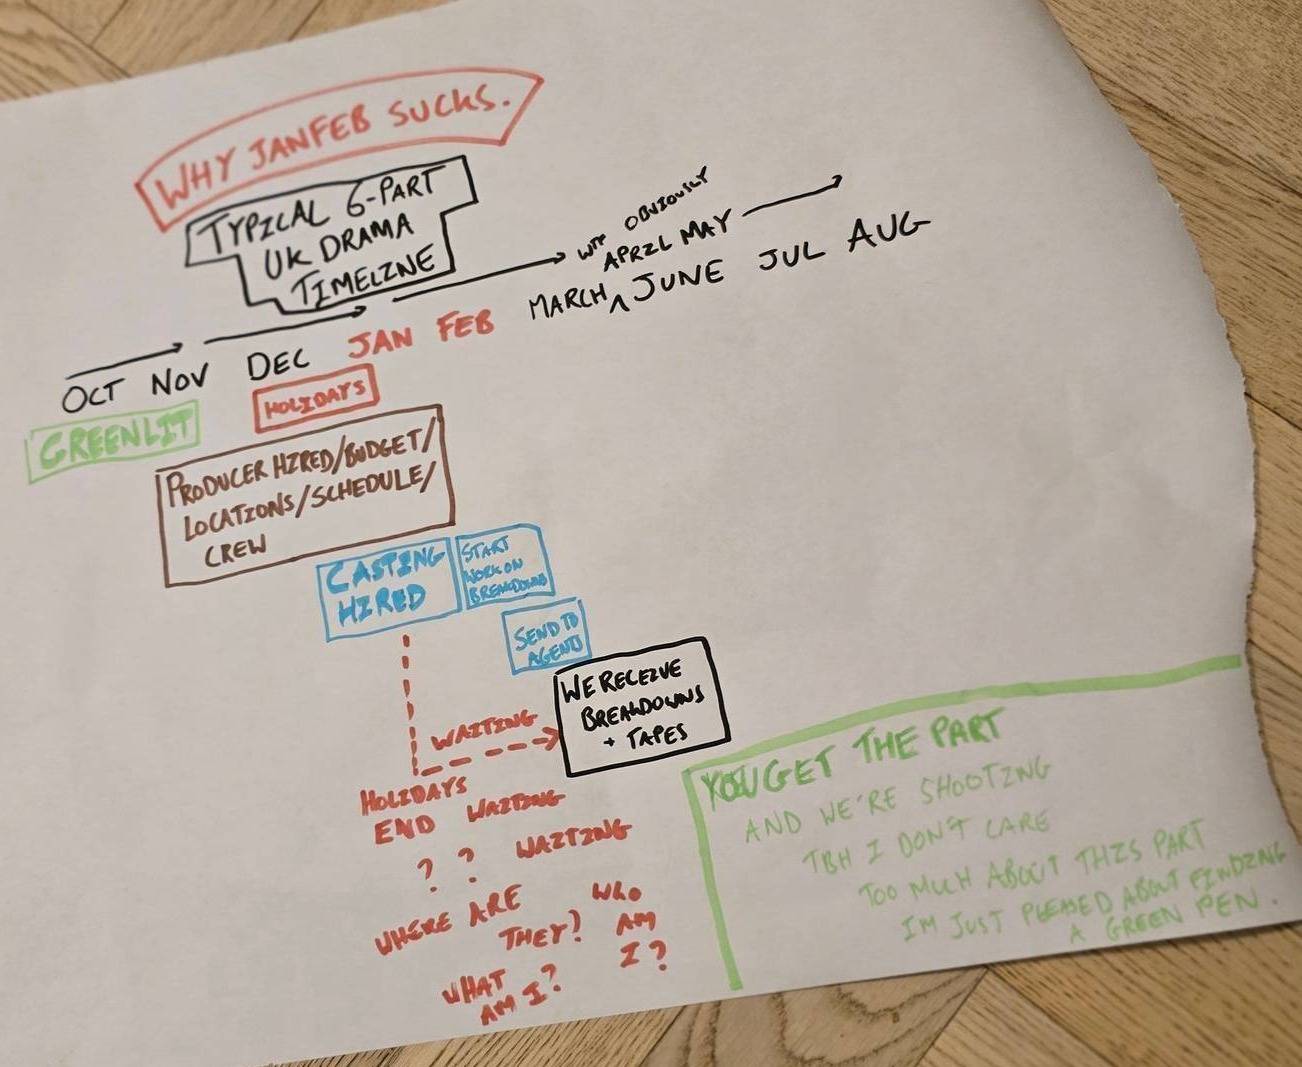 WHY JANFEB SUCKS.
TYPICAL 6-PART
UK DRAMA
TIMELINE
WTF OBVIOUSLY
APRIL MAY
OCT NOV DEC JAN FEB MARCH ^ JUNE JUL AUG
GREENLIT
HOLIDAYS
PRODUCER HIRED/BUDGET/
LOCATIONS/SCHEDULE/
CREW
CASTING
HIRED
START
WORK ON
BREAKDOWNS
SEND TO
AGENTS
WE RECEIVE
BREAKDOWNS
+ TAPES
WAITING
HOLIDAYS
END
WAITING
? ?
WAITING
WHERE ARE
THEY?
WHO
AM
I?
WHAT
AM I?
YOU GET THE PART
AND WE'RE SHOOTING
TBH I DON'T CARE
TOO MUCH ABOUT THIS PART
IM JUST PLEASED ABOUT FINDING
A GREEN PEN.